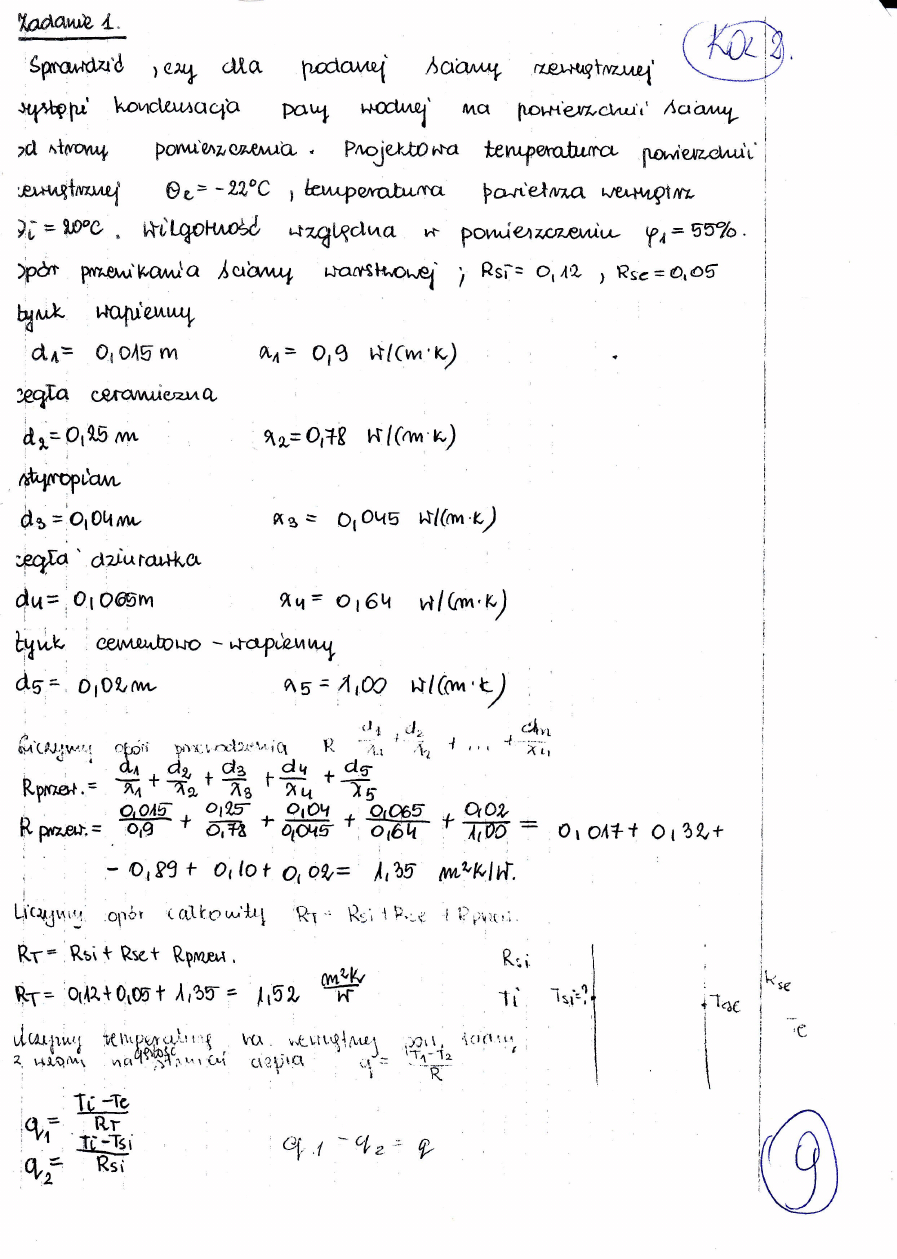 Zadanie 1.
KOL 2.
Sprawdzić, czy dla podanej ściany zewnętrznej
wystąpi kondensacja pary wodnej na powierzchni ściany
od strony pomieszczenia. Projektowa temperatura powierzchni
zewnętrznej Θe = -22°C, temperatura powietrza wewnątrz
= 20°C. Wilgotność względna w pomieszczeniu φ1 = 55%.
opór przenikania ściany warstwowej; Rsi = 0,12, Rse = 0,05
tynk wapienny
d1 = 0,015 m λ1 = 0,9 W/(m·K)
cegła ceramiczna
d2 = 0,25 m λ2 = 0,78 W/(m·K)
styropian
d3 = 0,04 m λ3 = 0,045 W/(m·K)
cegła dziurawka
d4 = 0,065m λ4 = 0,64 W/(m·K)
tynk cementowo-wapienny
d5 = 0,02 m λ5 = 1,00 W/(m·K)
Liczymy opór przewodzenia R d1/λ1 + d2/λ2 + ... + dn/λn
Rprzew. = d1/λ1 + d2/λ2 + d3/λ3 + d4/λ4 + d5/λ5
R przew. = 0,015/0,9 + 0,25/0,78 + 0,04/0,045 + 0,065/0,64 + 0,02/1,00 = 0,017 + 0,32 +
- 0,89 + 0,10 + 0,02 = 1,35 m²K/W.
Liczymy opór całkowity RT = Rsi + Rse + Rprzew.
RT = Rsi + Rse + Rprzew.
RT = 0,12 + 0,05 + 1,35 = 1,52 m²K/W
Rsi Rse
Ti Tsi=? Tse Te
Liczymy temperaturę na wewnętrznej pow. ściany
z gęstość ciepła q = T1-T2/R
q1 = Ti-Te/RT
q2 = Ti-Tsi/Rsi q1 - q2 = q
9